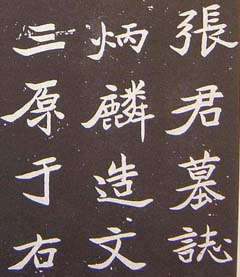 張君墓誌
炳麟造文
三原于右